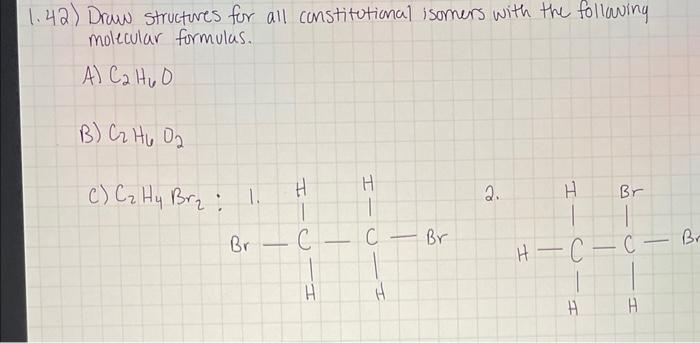 1.42) Draw structures for all constitutional isomers with the following
molecular formulas.
A) C2H6O
B) C2H6O2
C) C2H4Br2 : 1. H H 2. H Br
Br — C — C — Br H — C — C — Br
H H H H